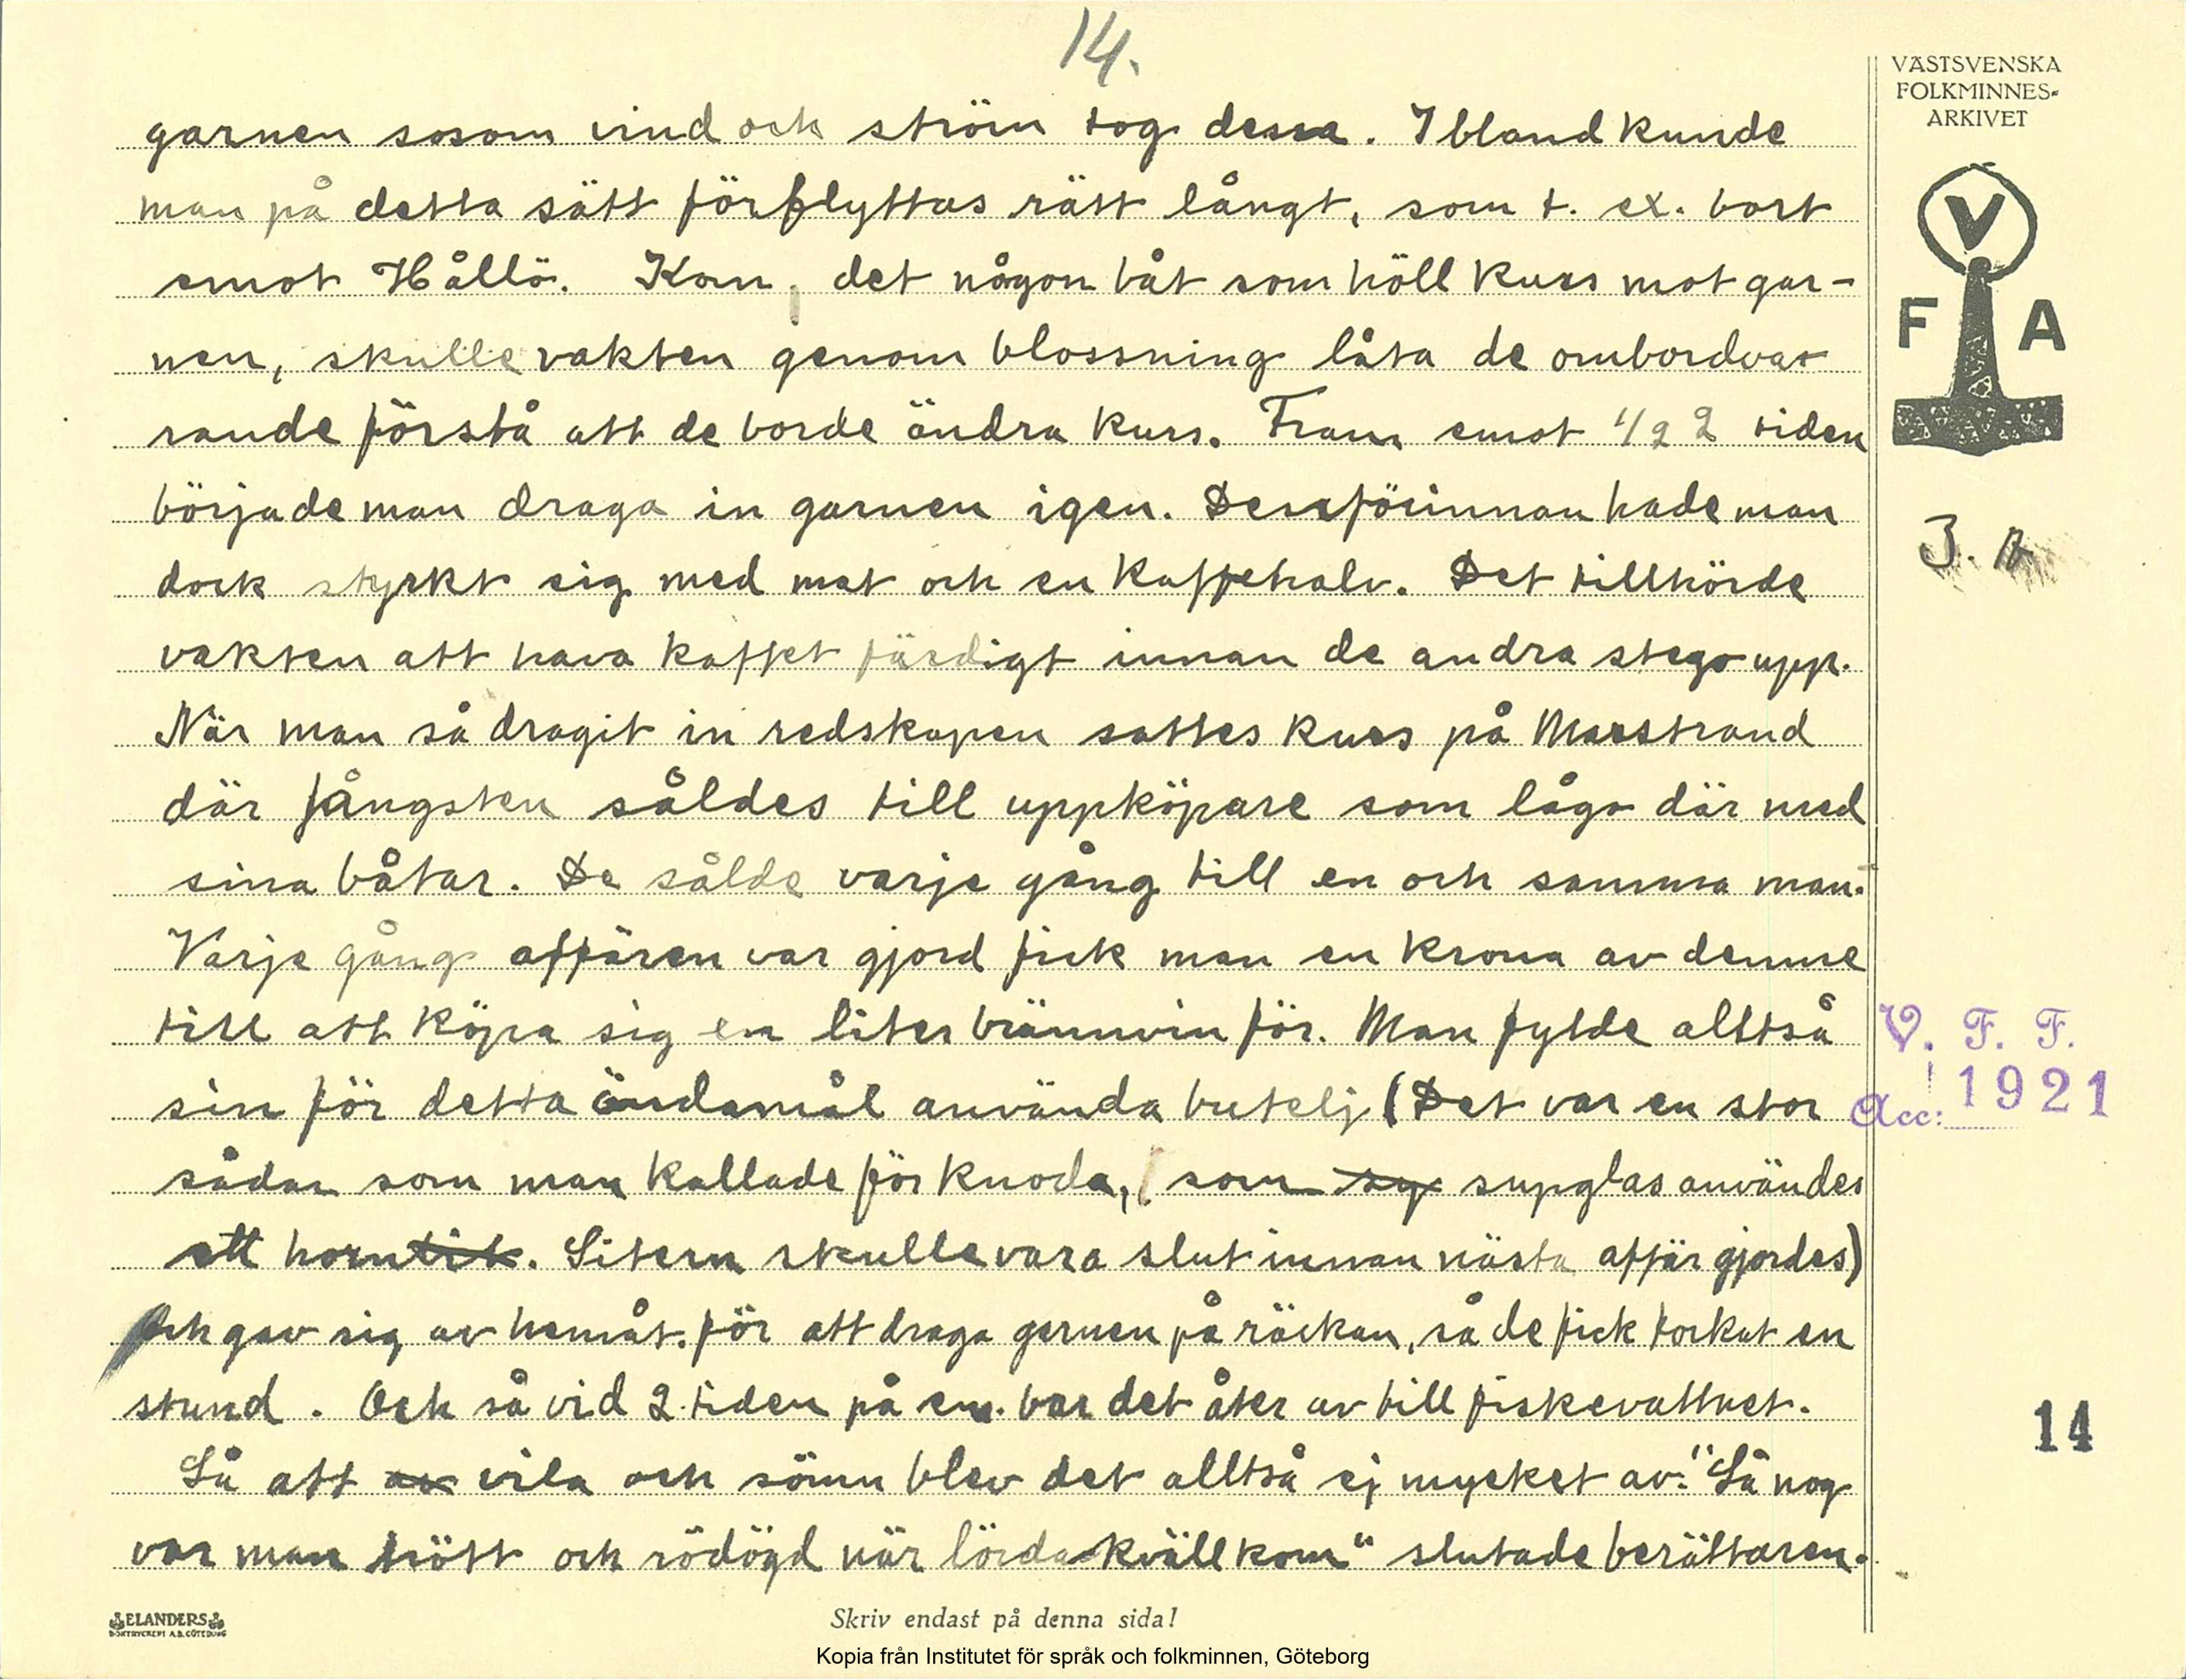 14.
VÄSTSVENSKA
FOLKMINNES-
ARKIVET
garnen sosom vind och ström tog dessa. Ibland kunde
man på detta sätt förflyttas rätt långt, som t. ex. bort
emot Hållö. Kom det någon båt som höll kurs mot gar-
nen, skulle vakten genom blossning låta de ombordva-
rande förstå att de borde ändra kurs. Fram emot 1/2 2 tiden
började man draga in garnen igen. Dessförinnan hade man
dock styrkt sig med mat och en kaffehalv. Det tillhörde
vakten att hava kaffet färdigt innan de andra stego upp.
När man så dragit in redskapen sattes kurs på Marstrand
där fångsten såldes till uppköpare som lågo där med
sina båtar. De sålde varje gång till en och samma man.
Varje gång affären var gjord fick man en krona av denne
till att köpa sig en liter brännvin för. Man fylde alltså
sin för detta ändamål använda butelj (Det var en stor
sådan som man kallade för knoda, som sy supglas användes
ett horntit. Litern skulle vara slut innan nästa affär gjordes)
Och gav sig av hemåt. för att draga garnen på räckan, så de fick torkat en
stund. Och så vid 2 tiden på em. bar det åter av till fiskevattnet.
Så att av vila och sömn blev det alltså ej mycket av. "Så nog
var man trött och rödögd när lördakväll kom" slutade berättaren.
V
F A
3.
V. F. F.
Acc: 1921
14
ELANDERS
BOKTRYCKERI A.B. GÖTEBORG
Skriv endast på denna sida!
Kopia från Institutet för språk och folkminnen, Göteborg